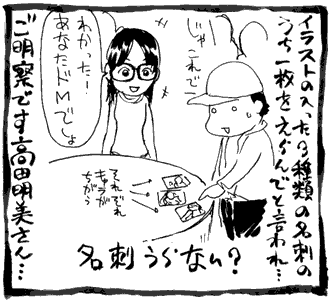 イラストの入った3種類の名刺の
うち一枚をえらんでと言われ…
じゃ
これで
わかったー!
あなたドMで
しょ
それぞれ
キャラが
ちがう
名刺うらない?
ご明察です高田明美さん…